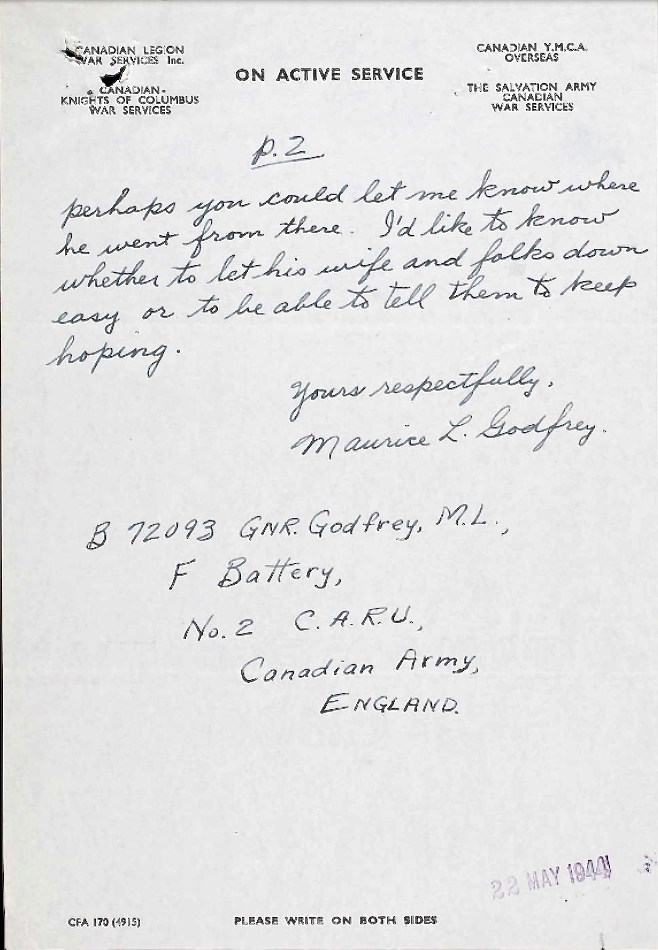 CANADIAN LEGION
WAR SERVICES Inc.
CANADIAN
KNIGHTS OF COLUMBUS
WAR SERVICES
ON ACTIVE SERVICE
CANADIAN Y.M.C.A.
OVERSEAS
THE SALVATION ARMY
CANADIAN
WAR SERVICES
p. 2
perhaps you could let me know where
he went from there. I'd like to know
whether to let his wife and folks down
easy or to be able to tell them to keep
hoping.
Yours respectfully,
Maurice L. Godfrey.
B 72093 GNR. Godfrey, M.L.,
F Battery,
No. 2 C.A.R.U.,
Canadian Army,
ENGLAND.
22 MAY 1944
CFA 170 (4915)
PLEASE WRITE ON BOTH SIDES